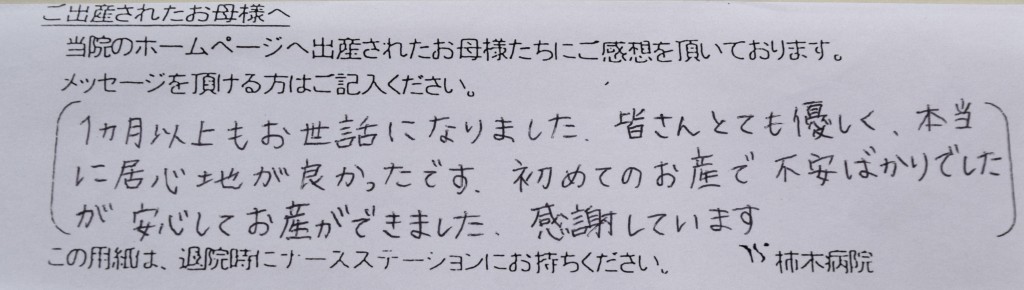 ご出産されたお母様へ
当院のホームページへ出産されたお母様たちにご感想を頂いております。
メッセージを頂ける方はご記入ください。
1ヵ月以上もお世話になりました、皆さんとても優しく、本当
に居心地が良かったです、初めてのお産で不安ばかりでした
が安心してお産ができました、感謝しています
この用紙は、退院時にナースステーションにお持ちください。 柿木病院